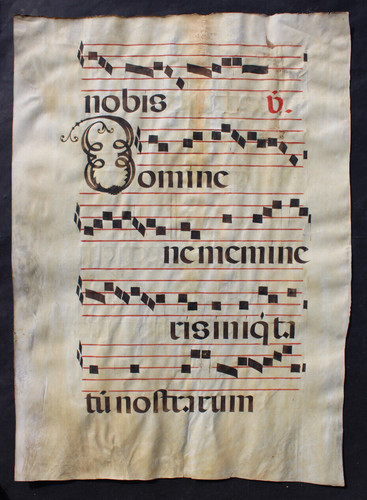 nobis V.
Domine
ne memine
ris iniq̃ta
tũ nostrarum